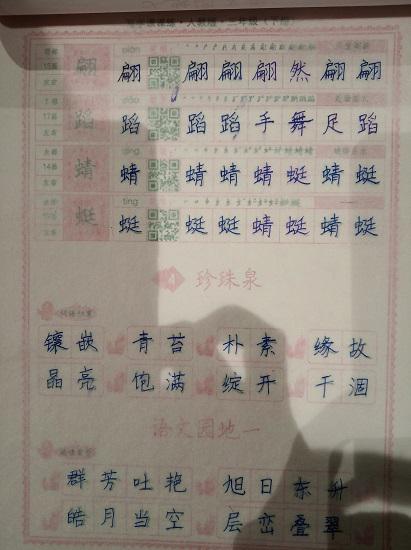 写字课课练·人教版·三年级(下册)
翩 翩 翩 翩 翩 然 翩 翩
蹈 蹈 蹈 蹈 手 舞 足 蹈
蜻 蜻 蜻 蜻 蜻 蜻 蜓
ting
蜓 蜓 蜓 蜓 蜻 蜓 蜻 蜓
4 珍珠泉
镶嵌 青苔 朴素 缘故
晶亮 饱满 绽开 干涸
语文园地一
群芳吐艳 旭日东升
皓月当空 层峦叠翠